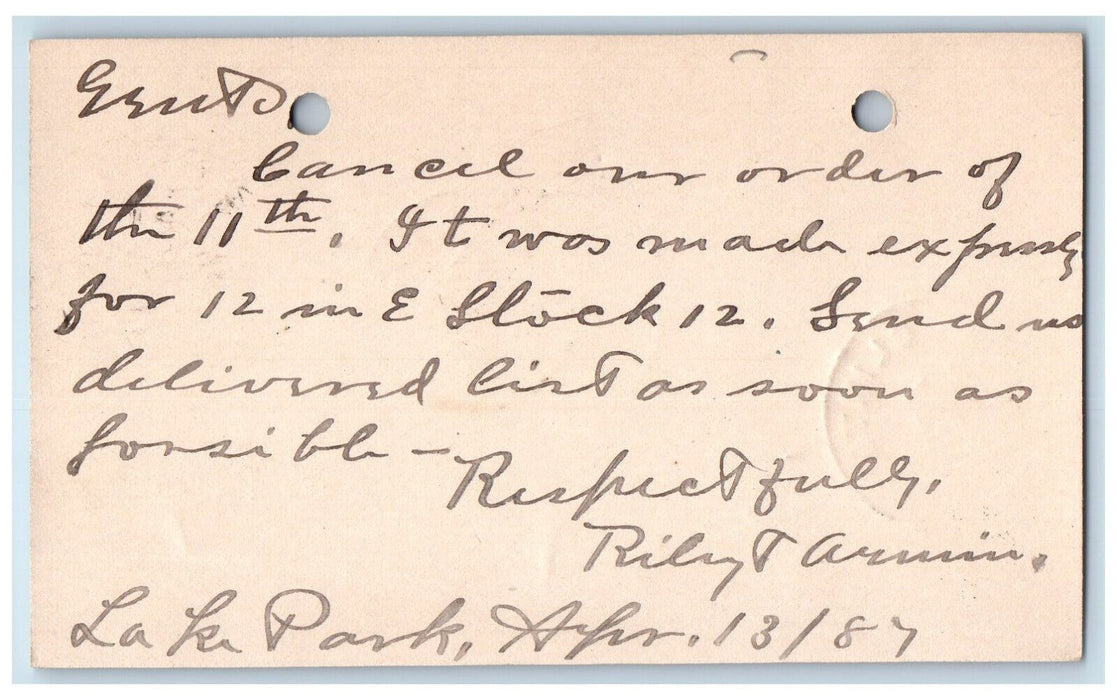 Gents,
Cancel our order of
the 11th. It was made expressly
for 12 in E Stock 12. Send us
delivered list as soon as
possible –
Respectfully,
Riley & Armin.
Lake Park, Apr. 13/87